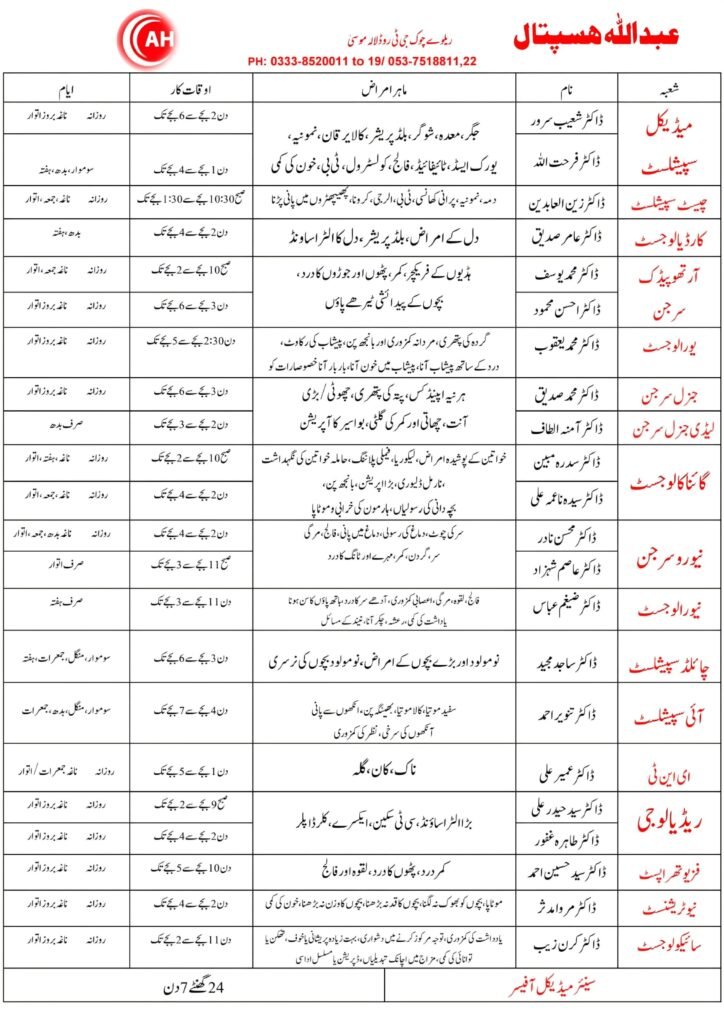 AH
عبداللہ ہسپتال
ریلوے چوک جی ٹی روڈ لالہ موسیٰ
PH: 0333-8520011 to 19/ 053-7518811,22
شعبہ نام ماہر امراض اوقات کار ایام
میڈیکل سپیشلسٹ
ڈاکٹر شعیب سرور دن 2 بجے سے 6 بجے تک روزانہ ناغہ بروز اتوار
جگر، معدہ، شوگر، بلڈ پریشر، کالا یرقان، نمونیہ،
یورک ایسڈ، ٹائیفائیڈ، فالج، کولسٹرول، ٹی بی، خون کی کمی
ڈاکٹر فرحت اللہ دن 1 بجے سے 4 بجے تک سوموار، بدھ، ہفتہ
چیسٹ سپیشلسٹ ڈاکٹر زین العابدین دمہ، نمونیہ، پرانی کھانسی، ٹی بی، الرجی، کرونا، پھیپھڑوں میں پانی پڑنا صبح 10:30 بجے سے 1:30 بجے تک روزانہ ناغہ، جمعہ، اتوار
کارڈیالوجسٹ ڈاکٹر عامر صدیق دل کے امراض، بلڈ پریشر، دل کا الٹراساونڈ دن 2 بجے سے 4 بجے تک بدھ، ہفتہ
آرتھوپیڈک سرجن
ڈاکٹر محمد یوسف ہڈیوں کے فریکچر، کمر، پٹھوں اور جوڑوں کا درد، صبح 10 بجے سے 2 بجے تک روزانہ ناغہ جمعہ، اتوار
ڈاکٹر احسن محمود بچوں کے پیدائشی ٹیڑھے پاؤں دن 3 بجے سے 6 بجے تک روزانہ ناغہ بروز اتوار
یورالوجسٹ ڈاکٹر محمد یعقوب گردہ کی پتھری، مردانہ کمزوری اور بانجھ پن، پیشاب کی رکاوٹ، دن 2:30 بجے سے 5 بجے تک روزانہ ناغہ بروز اتوار
درد کے ساتھ پیشاب آنا، پیشاب میں خون آنا، بار بار آنا خصوصارات کو
جنرل سرجن ڈاکٹر محمد صدیق ہرنیہ اپینڈکس، پتہ کی پتھری، چھوٹی/بڑی دن 3 بجے سے 6 بجے تک روزانہ ناغہ بروز اتوار
لیڈی جنرل سرجن ڈاکٹر آمنہ الطاف آنت، چھاتی اور کمر کی گلٹی، بواسیر کا آپریشن دن 2 بجے سے 3 بجے تک صرف بدھ
گائناکالوجسٹ
ڈاکٹر سدرہ مبین خواتین کے پوشیدہ امراض، لیکوریا، فیملی پلاننگ، حاملہ خواتین کی نگہداشت صبح 10 بجے سے 2 بجے تک روزانہ ناغہ ہفتہ، اتوار
، نارمل ڈلیوری، بڑا اپریشن، بانجھ پن،
ڈاکٹر سیدہ ناعمہ علی بچہ دانی کی رسولیاں، ہارمون کی خرابی و موٹاپا دن 2 بجے سے 4 بجے تک روزانہ ناغہ، جمعہ، اتوار
نیورو سرجن
ڈاکٹر محسن نادر سر کی چوٹ، دماغ کی رسولی، دماغ میں پانی، فالج، مرگی دن 2 بجے سے 4 بجے تک روزانہ ناغہ بدھ، جمعہ، اتوار
سر، گردن، کمر، مہرے اور ٹانگ کا درد
ڈاکٹر عاصم شہزاد صبح 11 بجے سے 3 بجے تک صرف اتوار
نیورالوجسٹ ڈاکٹر ضیغم عباس فالج، لقوہ، مرگی، اعصابی کمزوری، آدھے سر کا درد، ہاتھ پاؤں کا سن ہونا دن 11 بجے سے 3 بجے تک صرف ہفتہ
یادداشت کی کمی، رعشہ، چکر آنا، نیند کے مسائل
چائلڈ سپیشلسٹ ڈاکٹر ساجد مجید نومولود اور بڑے بچوں کے امراض، نومولود بچوں کی نرسری دن 3 بجے سے 6 بجے تک سوموار، منگل، جمعرات، ہفتہ
آئی سپیشلسٹ ڈاکٹر تنویر احمد سفید موتیا، کالا موتیا، بھینگا پن، انکھوں سے پانی دن 4 بجے سے 7 بجے تک سوموار، منگل، بدھ، جمعرات
آنکھوں کی سرخی، نظر کی کمزوری
ای این ٹی ڈاکٹر عمیر علی ناک، کان، گلہ دن 1 بجے سے 5 بجے تک روزانہ ناغہ جمعرات / اتوار
ریڈیالوجی
ڈاکٹر سید حیدر علی صبح 9 بجے سے 2 بجے تک روزانہ ناغہ بروز اتوار
بڑا الٹراساؤنڈ، سی ٹی سکین، ایکسرے، کلر ڈاپلر
ڈاکٹر طاہرہ غفور دن 2 بجے سے 4 بجے تک روزانہ ناغہ بروز اتوار
فزیوتھراپسٹ ڈاکٹر سید حسنین احمد کمر درد، پٹھوں کا درد، لقوہ اور فالج دن 10 بجے سے 5 بجے تک روزانہ ناغہ بروز اتوار
نیوٹریشنسٹ ڈاکٹر مروا مدثر موٹاپا، بچوں کو بھوک نہ لگنا، بچوں کا قد نہ بڑھنا، بچوں کا وزن نہ بڑھنا، خون کی کمی دن 2 بجے سے 4 بجے تک روزانہ ناغہ بروز اتوار
سائیکولوجسٹ ڈاکٹر کرن زیب یادداشت کی کمزوری، توجہ مرکوز کرنے میں دشواری، بہت زیادہ پریشانی یا خوف، تھکن یا دن 11 بجے سے 2 بجے تک روزانہ ناغہ بروز اتوار
توانائی کی کمی، مزاج میں اچانک تبدیلیاں، ڈپریشن یا مسلسل اداسی
سینئر میڈیکل آفیسر 24 گھنٹے 7 دن